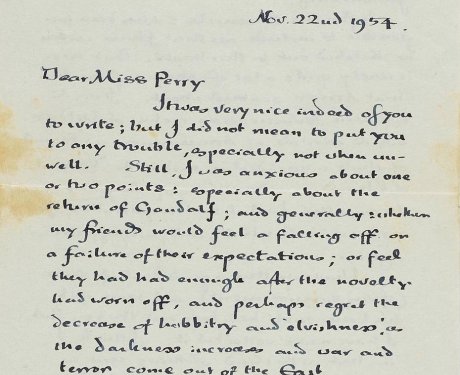 Nov. 22nd 1954.
Dear Miss Perry
It was very nice indeed of you
to write; but I did not mean to put you
to any trouble, especially not when un-
well. Still, I was anxious about one
or two points: especially about the
return of Gandalf; and generally: whether
my friends would feel a falling off or
a failure of their expectations; or feel
they had had enough after the novelty
had worn off, and perhaps regret the
decrease of hobbitry and 'elvishness' as
the darkness increases and war and
terror come out of the East.